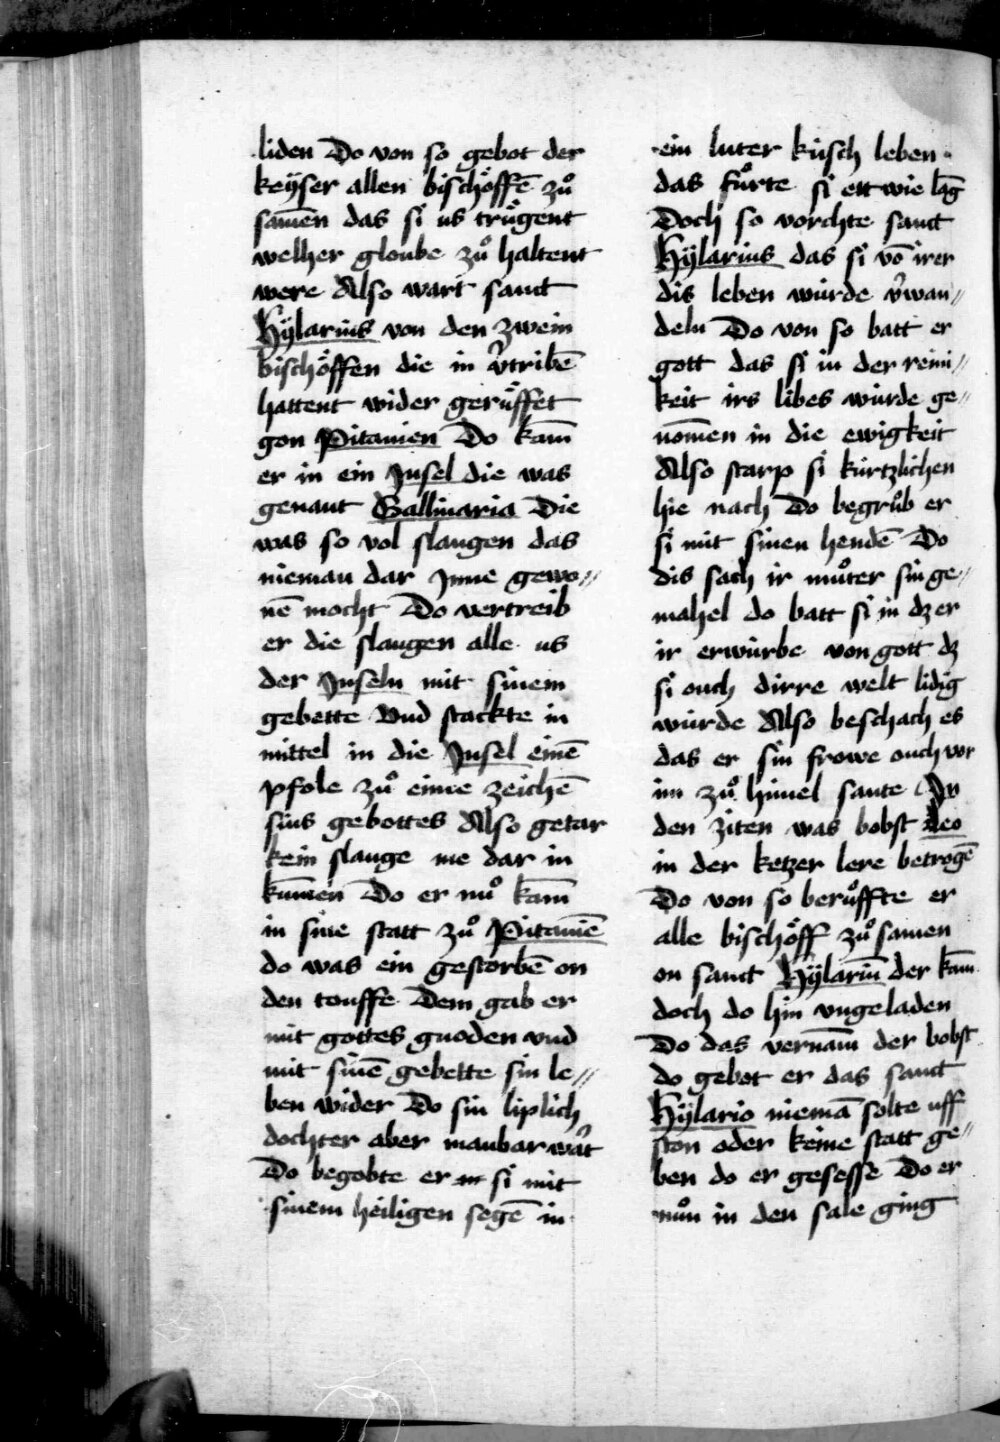 liden Do von so gebot der
keÿser allen bischöffē zuͦ
sam̄en das si us truͤgent
welher gloube zuͦ haltent
were Also wart sanct
Hÿlarius von den zwein
bischöffen die in v̓tribē
hattent wider geruͤffet
gon Pitanien Do kam̄
er in ein Jnsel die was
genant Gallinaria Die
was so vol slangen das
nieman dar Jnne gewo⸗
nē mocht Do vertreib
er die slangen alle us
der Jnseln mit sinem
gebette Vnd stackte in
mittel in die Jnsel einē
pfole zuͦ eime zeichē
sins gebottes Also getar
kein slange me dar in
kum̄en Do er nuͦ kam̄
in sine statt zuͦ Pitaniē
do was ein gestorbē on
den touffe Dem gab er
mit gottes gnoden vnd
mit sinē gebette sin le⸗
ben wider Do sin liplich
dochter aber manbar wart
Do begobte er si mit
sinem heiligen segē in
ein luter küsch leben
das fuͦrte si ettwie lāg
Doch so vorchte sanct
Hÿlarius das si vō irer
dis leben würde v̓wan⸗
deln Do von so batt er
gott das si in der reini⸗
keit irs libes würde ge⸗
nom̄en in die ewigkeit
Also starp si kürtzlichen
hie nach Do begruͦb er
si mit sinen hendē Do
dis sach ir muͦter sin ge⸗
mahel do batt si in dz er
ir erwürbe von gott dz
si ouch dirre welt lidig
würde Also beschach es
das er sin frowe ouch vor
im zuͦ himel sante Jn
den ziten was bobst Leo
in der ketzer lere betrogē
Do von so beruͦffte er
alle bischöff zuͦ samen
on sanct Hÿlariū der kam̄
doch do hin vngeladen
Do das vernam̄ der bobst
do gebot er das sanct
Hÿlario niemā solte uff
ston oder keine statt ge⸗
ben do er gesesse Do er
nuͦn in den sale ging